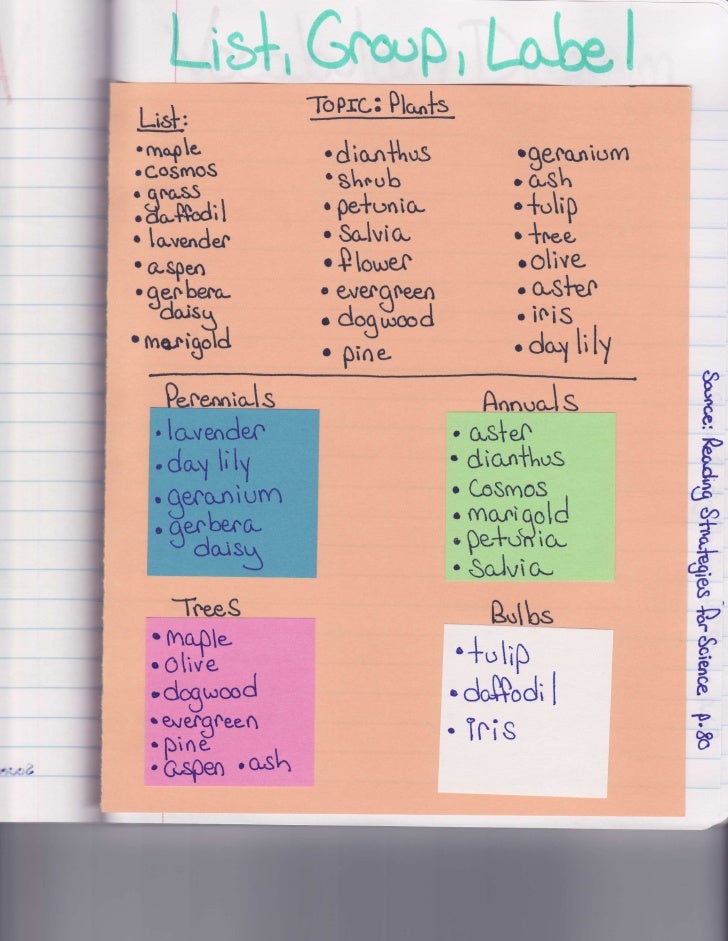 List, Group, Label
TOPIC: Plants
List:
• maple
• cosmos
• grass
• daffodil
• lavender
• aspen
• gerbera
daisy
• marigold
• dianthus
• shrub
• petunia
• salvia
• flower
• evergreen
• dogwood
• pine
• geranium
• ash
• tulip
• tree
• olive
• aster
• iris
• day lily
Perennials
• lavender
• day lily
• geranium
• gerbera
daisy
Annuals
• aster
• dianthus
• cosmos
• marigold
• petunia
• salvia
Trees
• maple
• olive
• dogwood
• evergreen
• pine
• aspen • ash
Bulbs
• tulip
• daffodil
• iris
Source: Reading Strategies for Science p. 80